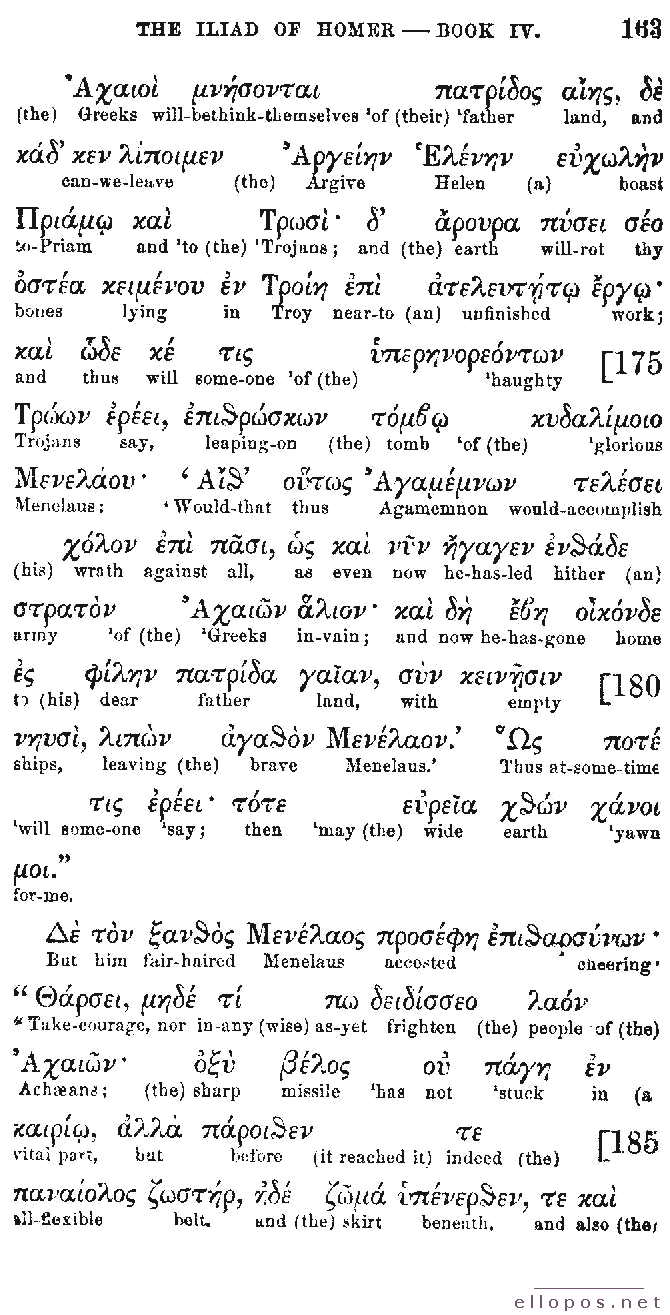 THE ILIAD OF HOMER — BOOK IV. 163
Ἀχαιοὶ μνήσονται πατρίδος αἴης, δὲ
(the) Greeks will-bethink-themselves 'of (their) 'father land, and
κάδ' κεν λίποιμεν Ἀργείην Ἑλένην εὐχωλὴν
can-we-leave (the) Argive Helen (a) boast
Πριάμῳ καὶ Τρωσί· δ' ἄρουρα πύσει σέο
to-Priam and 'to (the) 'Trojans; and (the) earth will-rot thy
ὀστέα κειμένου ἐν Τροίῃ ἐπὶ ἀτελευτήτῳ ἔργῳ·
bones lying in Troy near-to (an) unfinished work;
καὶ ὧδε κέ τις ὑπερηνορεόντων [175
and thus will some-one 'of (the) 'haughty
Τρώων ἐρέει, ἐπιθρώσκων τόμβῳ κυδαλίμοιο
Trojans say, leaping-on (the) tomb 'of (the) 'glorious
Μενελάου· ‘Αἴθ' οὕτως Ἀγαμέμνων τελέσει
Menelaus: ‘Would-that thus Agamemnon would-accomplish
χόλον ἐπὶ πᾶσι, ὡς καὶ νῦν ἤγαγεν ἐνθάδε
(his) wrath against all, as even now he-has-led hither (an)
στρατὸν Ἀχαιῶν ἅλιον· καὶ δὴ ἔβη οἶκόνδε
army 'of (the) 'Greeks in-vain; and now he-has-gone home
ἐς φίλην πατρίδα γαῖαν, σὺν κεινῇσιν [180
to (his) dear father land, with empty
νηυσὶ, λιπὼν ἀγαθὸν Μενέλαον.’ Ὣς ποτέ
ships, leaving (the) brave Menelaus.’ Thus at-some-time
τις ἐρέει· τότε εὐρεῖα χθών χάνοι
'will some-one 'say; then 'may (the) wide earth 'yawn
μοι.”
for-me.
Δὲ τὸν ξανθὸς Μενέλαος προσέφη ἐπιθαρσύνων·
But him fair-haired Menelaus accosted cheering·
“Θάρσει, μηδέ τί πω δειδίσσεο λαόν
“Take-courage, nor in-any (wise) as-yet frighten (the) people of (the)
Ἀχαιῶν· ὀξὺ βέλος οὐ πάγη ἐν
Achæans; (the) sharp missile 'has not 'stuck in (a
καιρίῳ, ἀλλὰ πάροιθεν τε [185
vital part, but before (it reached it) indeed (the)
παναίολος ζωστήρ, ἠδέ ζῶμά ὑπένερθεν, τε καὶ
all-flexible belt. and (the) skirt beneath, and also (the)
ellopos.net